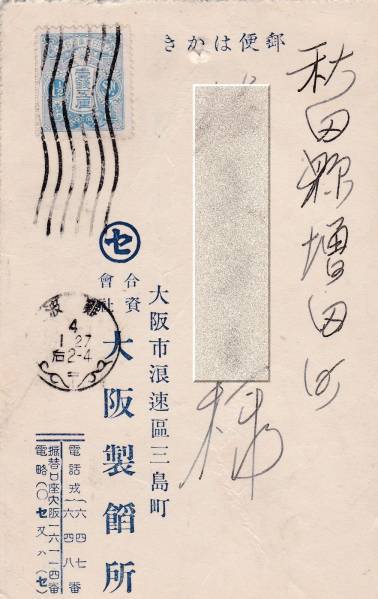 郵便はかき
秋田縣増田町
様
壹錢五厘
難波
4
1.27
后2-4
セ
合資
會社
大阪市浪速區三島町
大阪製餡所
電話戎
六四七番
六四八
振替口座大阪一六一一四番
電略(〇セ)又ハ(セ)